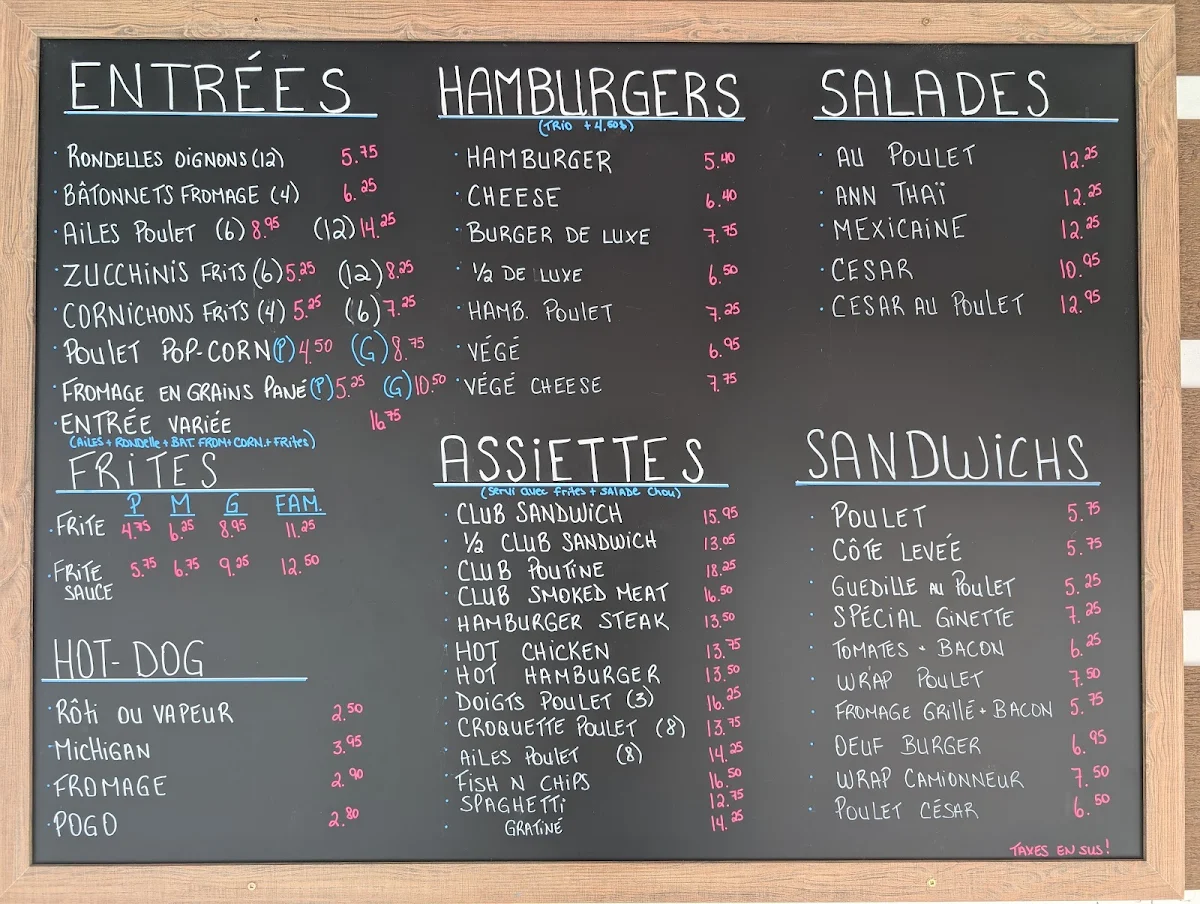 ENTRÉES
RONDELLES OIGNONS (12) 5.75
BÂTONNETS FROMAGE (4) 6.25
AILES POULET (6) 8.95 (12) 14.25
ZUCCHINIS FRITS (6) 5.25 (12) 8.25
CORNICHONS FRITS (4) 5.25 (6) 7.25
POULET POP-CORN (P) 4.50 (G) 8.75
FROMAGE EN GRAINS PANÉ (P) 5.25 (G) 10.50
ENTRÉE VARIÉE 16.75
(AILES + RONDELLE + BAT. FROM + CORN. + FRITES)
FRITES
P M G FAM.
FRITE 4.75 6.25 8.95 11.25
FRITE 5.75 6.75 9.25 12.50
SAUCE
HOT-DOG
RÔTI OU VAPEUR 2.50
MICHIGAN 3.95
FROMAGE 2.90
POGO 2.80
HAMBURGERS
(TRIO + 4.50$)
HAMBURGER 5.40
CHEESE 6.40
BURGER DE LUXE 7.75
1/2 DE LUXE 6.50
HAMB. POULET 7.25
VÉGÉ 6.95
VÉGÉ CHEESE 7.75
ASSIETTES
(SERVI AVEC FRITES + SALADE CHOU)
CLUB SANDWICH 15.95
1/2 CLUB SANDWICH 13.05
CLUB POUTINE 18.25
CLUB SMOKED MEAT 16.50
HAMBURGER STEAK 13.50
HOT CHICKEN 13.75
HOT HAMBURGER 13.50
DOIGTS POULET (3) 16.25
CROQUETTE POULET (8) 13.75
AILES POULET (8) 14.25
FISH N CHIPS 16.50
SPAGHETTI 12.75
GRATINÉ 14.25
SALADES
AU POULET 12.25
ANN THAÏ 12.25
MEXICAINE 12.25
CESAR 10.95
CESAR AU POULET 12.95
SANDWICHS
POULET 5.75
CÔTE LEVÉE 5.75
GUEDILLE AU POULET 5.25
SPÉCIAL GINETTE 7.25
TOMATES + BACON 6.25
WRAP POULET 7.50
FROMAGE GRILLÉ + BACON 5.75
OEUF BURGER 6.95
WRAP CAMIONNEUR 7.50
POULET CÉSAR 6.50
TAXES EN SUS!